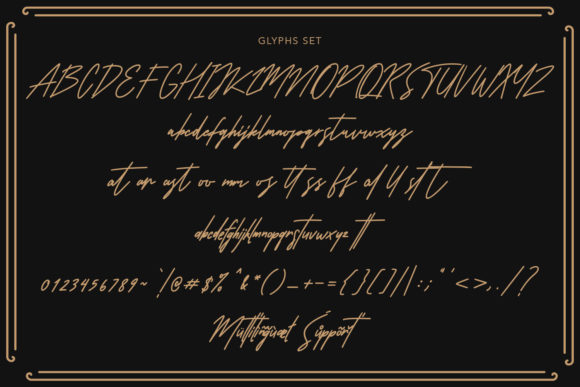 GLYPHS SET
ABCDEFGHIJKLMNOPQRSTUVWXYZ
abcdefghijklmnopqrstuvwxyz
at an ast oo mm os tt ss ff al ll stt
abcdefghijklmnopqrstuvwxyz tt
0123456789~ `!@#$%^&*()_+-={}[]|\:;"'<>,./?
Multilingual Support